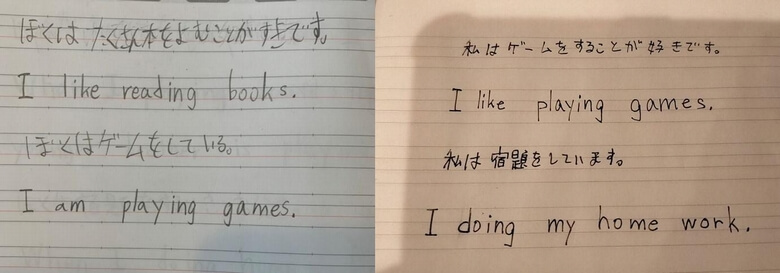 ぼくは たくさん本をよむことがすきです。
I like reading books.
ぼくはゲームをしている。
I am playing games.
私はゲームをすることが好きです。
I like playing games.
私は宿題をしています。
I doing my home work.